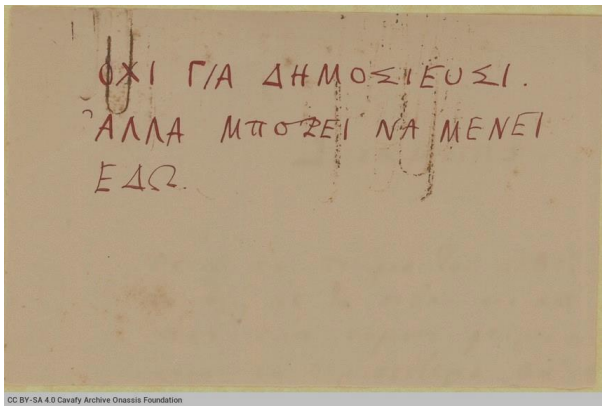 ΟΧΙ ΓΙΑ ΔΗΜΟΣΙΕΥΣΙ.
ἈΛΛΑ ΜΠΟΡΕΙ ΝΑ ΜΕΝΕΙ
ΕΔΩ.
CC BY-SA 4.0 Cavafy Archive Onassis Foundation